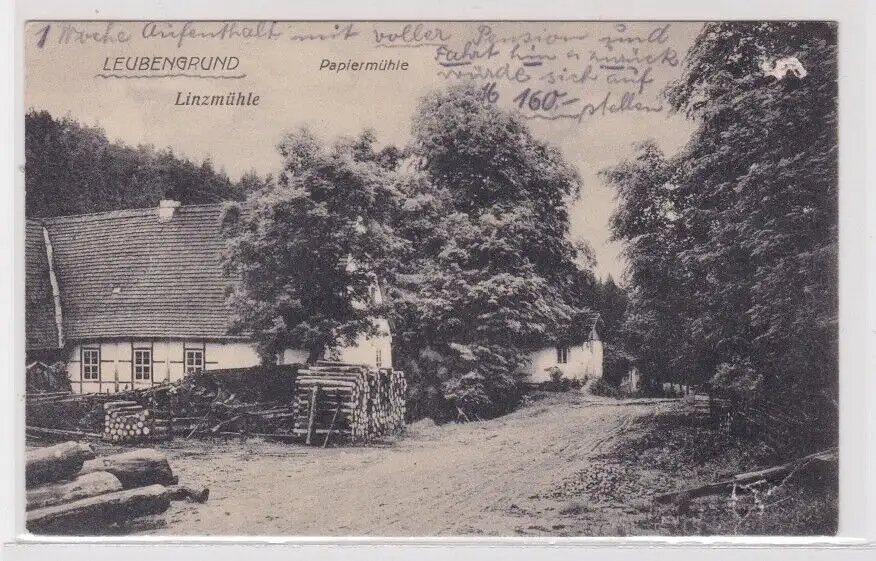 1 Woche Aufenthalt mit voller Pension und
Fahrt hin u zurück
würde sich auf
M 160.- stellen
LEUBENGRUND
Papiermühle
Linzmühle